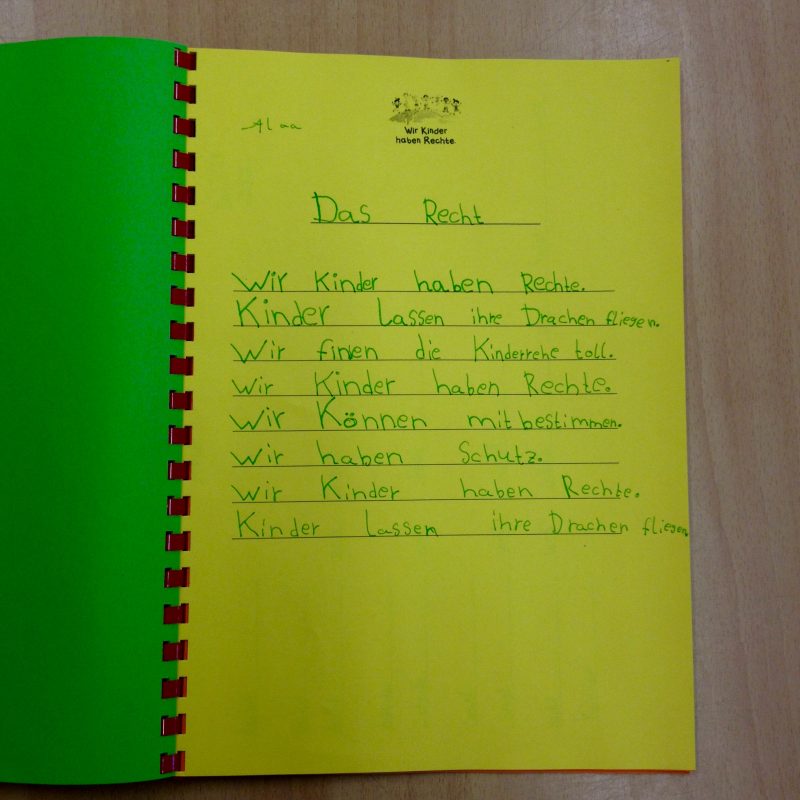 Alaa
Wir Kinder
haben Rechte.
Das Recht
Wir Kinder haben Rechte.
Kinder Lassen ihre Drachen fliegen.
Wir finen die Kinderrehe toll.
Wir Kinder haben Rechte.
Wir Können mitbestimmen.
Wir haben Schutz.
Wir Kinder haben Rechte.
Kinder lassen ihre Drachen fliegen